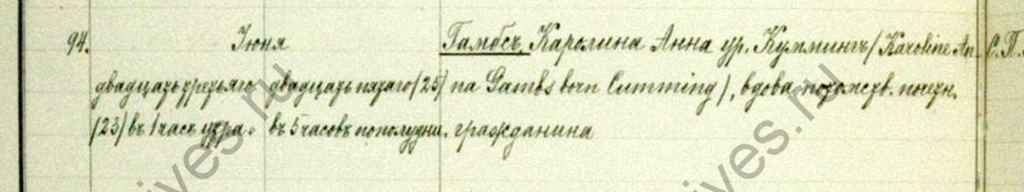 94. Июня Гамбсъ, Каролина Анна ур. Куммингъ / Karoline An- С.П.
двадцать третьяго двадцать пятаго /25/ na Gambs born Cumming /, вдова потомств. почетн.
/23/ въ 1 часъ утра. въ 5 часовъ пополудни. гражданина
ives.ru
ives